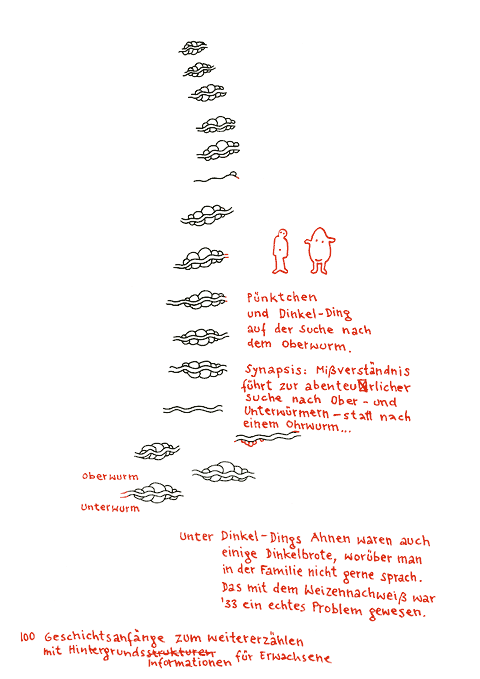 Pünktchen
und Dinkel-Ding
auf der Suche nach
dem Oberwurm.
Synapsis: Mißverständnis
führt zur abenteurlicher
Suche nach Ober- und
Unterwürmern - statt nach
einem Ohrwurm...
Oberwurm
Unterwurm
Unter Dinkel-Dings Ahnen waren auch
einige Dinkelbrote, worüber man
in der Familie nicht gerne sprach.
Das mit dem Weizennachweiß war
'33 ein echtes Problem gewesen.
100 Geschichtsanfänge zum weitererzählen
mit Hintergrundsstrukturen für Erwachsene
informationen